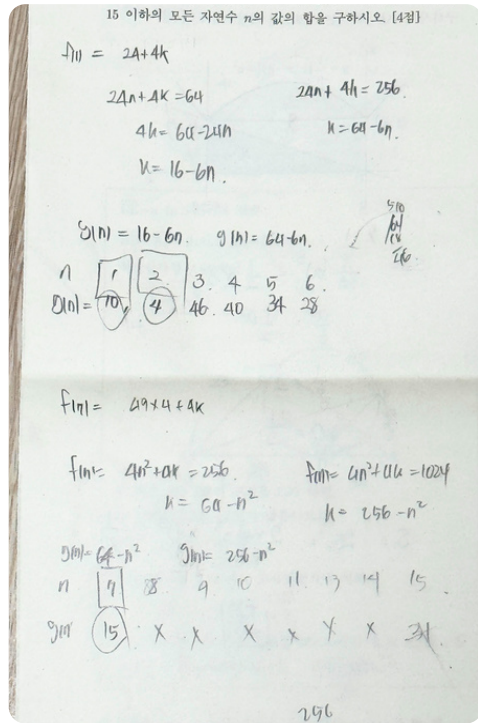 15 이하의 모든 자연수 n의 값의 합을 구하시오. [4점]
f(1) = 24+4k
24n+4k=64
24n+4k=256.
4k=64-24n
k=64-6n
k=16-6n.
g(n)=16-6n. g(n)=64-6n.
n 1 2 3. 4 5 6.
g(n)= 10, 4 46. 40 34 28
f(7)= 49×4+4k
f(n)= 4n²+4k=256.
f(n)= 4n²+4k=1024
k=64-n²
k=256-n²
g(n)=64-n² g(n)=256-n²
n 7 8 9 10 11 13 14 15
g(n) 15 x x x x x x 31
256